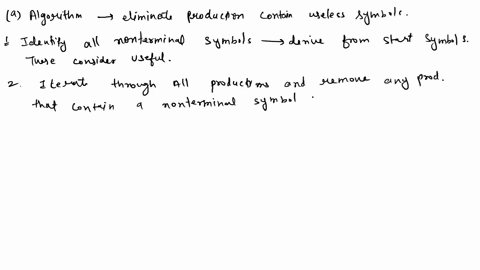 (a) Algorithm → eliminate production contain useless symbols.
1 Identify all nonterminal symbols → derive from start symbols.
These consider useful.
2. Iterate through All productions and remove any prod.
that contain a nonterminal symbol.